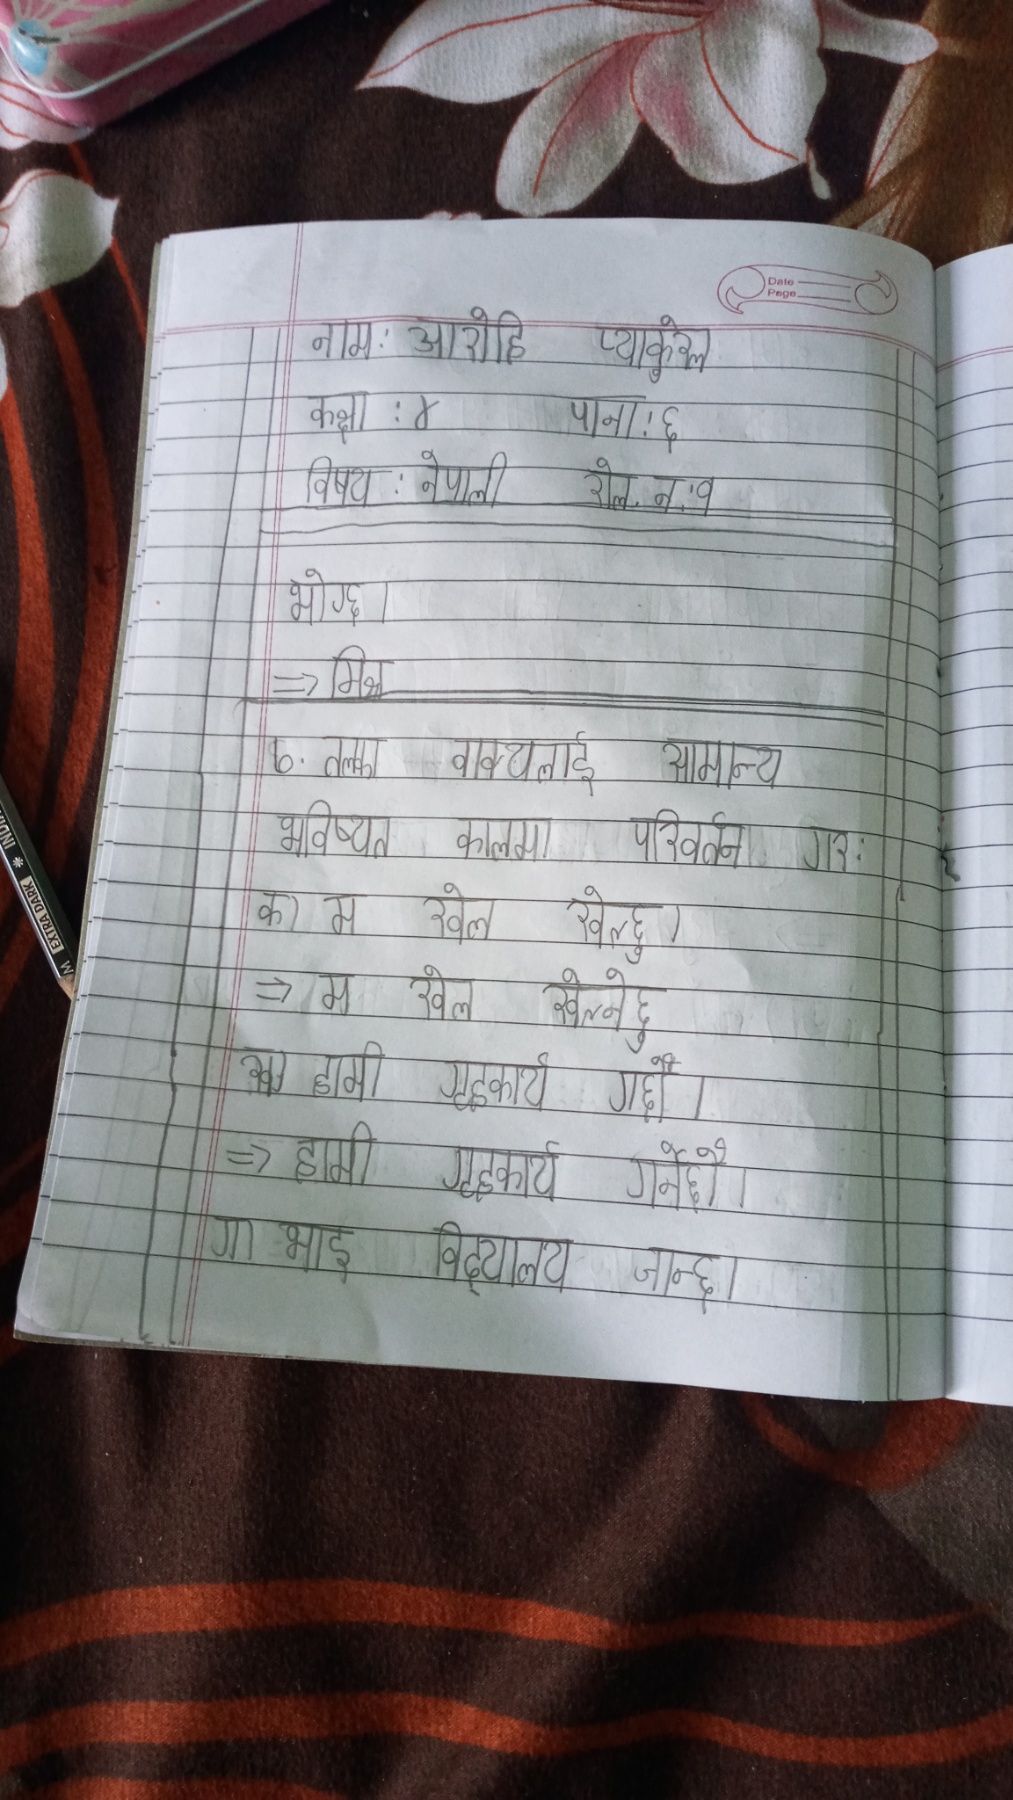 Date
Page
नाम: आरोहि प्याकुरेल
कक्षा : ४ पाना: ६
विषय : नेपाली रोल. न.: १
भोग्छ।
⇒ मिश्र
७. तलका वाक्यलाई सामान्य
भविष्यत कालमा परिवर्तन गर:
क) म खेल खेल्छु।
⇒ म खेल खेल्नेछु
ख) हामी गृहकार्य गर्छौँ।
⇒ हामी गृहकार्य गर्नेछौँ।
ग) भाइ विद्यालय जान्छ।
M EXTRA DARK * INDI